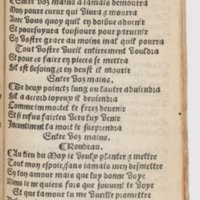 Entre voz mains a iamais demourra
Mon poure cueur qui viura & mourra
Auec vous quoy quil en doibue aduenir
Et poursuyura tousiours pour paruenir
En vostre grace au moins mal quil pourra
Tout vostre vueil entierement vouldra
Et pour ce faire en piece se mettra
Sil est besoing & en deust il mourir
Entre voz mains.
De deux poinctz lung ou lautre aduiendra
Sil a accord ioyeux il deuiendra
Comme immortel se ferez deuenir
Et si refus faictes vers luy venir
Incontinent la mort le surprendra
Entre voz mains.
Rondeau.
Au lieu du May ie veulx planter & mettre
Tout mon espoir, sans iamais men desmettre
En ton amour mais que luy donne voye
Riens ie ne quiers fors que souuent te voye
Et que tamour tu me vueille promettre